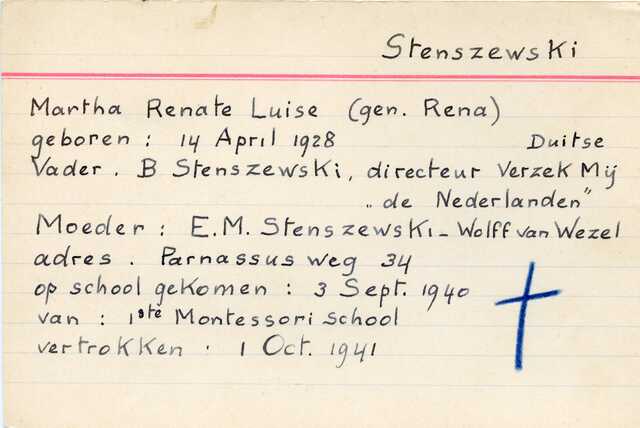 Stenszewski
Martha Renate Luise (gen. Rena)
geboren : 14 April 1928 Duitse
Vader . B Stenszewski, directeur Verzek Mij
„de Nederlanden"
Moeder : E.M. Stenszewski - Wolff van Wezel
adres . Parnassus weg 34
op school gekomen : 3 Sept. 1940
van : 1ste Montessori school
vertrokken . 1 Oct. 1941